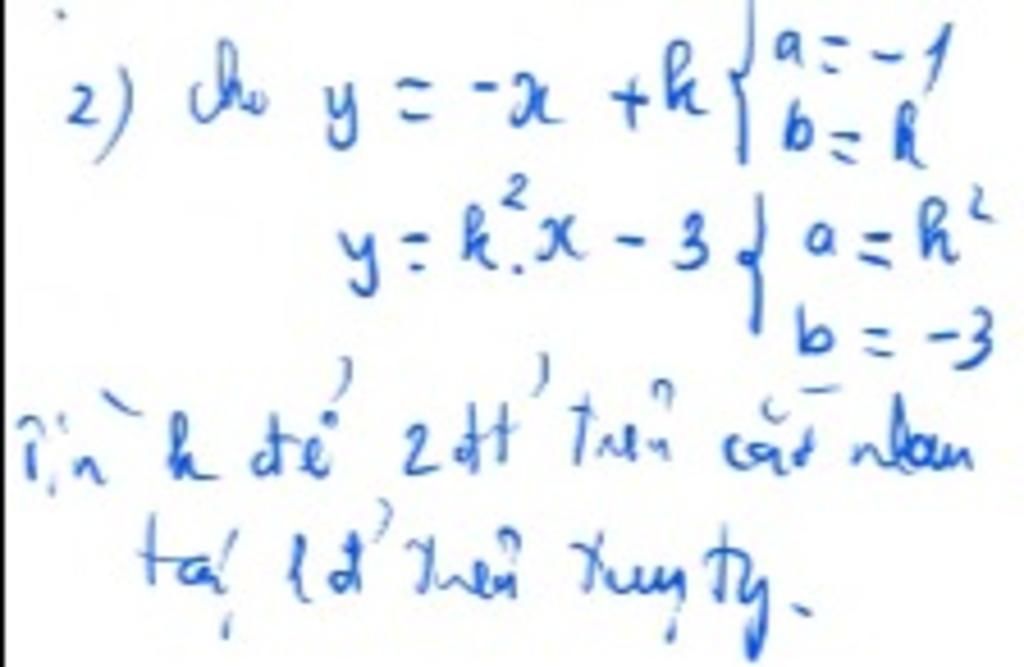 2) cho y = -x + k { a = -1
b = k
y = k².x - 3 { a = k²
b = -3
Tìm k để 2 đt trên cắt nhau
tại 1 đ' trên trục tung.